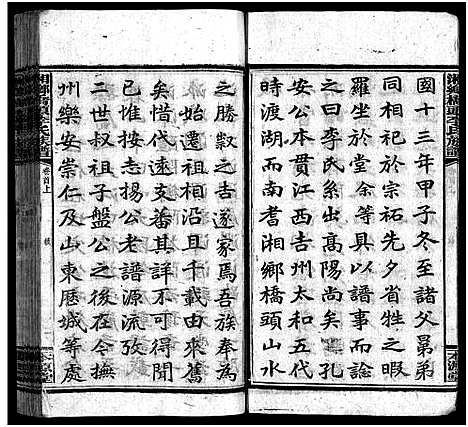 國十三年甲子冬至諸父昆弟
同相祀於宗祏先夕省牲之暇
羅坐於堂余等具以譜事而諭
之曰李氏絲出高陽尚矣五代
時渡湖南耆湘鄉橋頭山水
安孔本貫江西吉州太和
之勝獘之吉遂家焉吾族奉為
始遷祖相沿且千載由來舊
矣惜代遠支蕃其詳不可得聞
已惟按志揚公老譜源流攷
二世叔祖子盤公之後在今撫
州樂安崇仁及山東歷城等處
卷首上